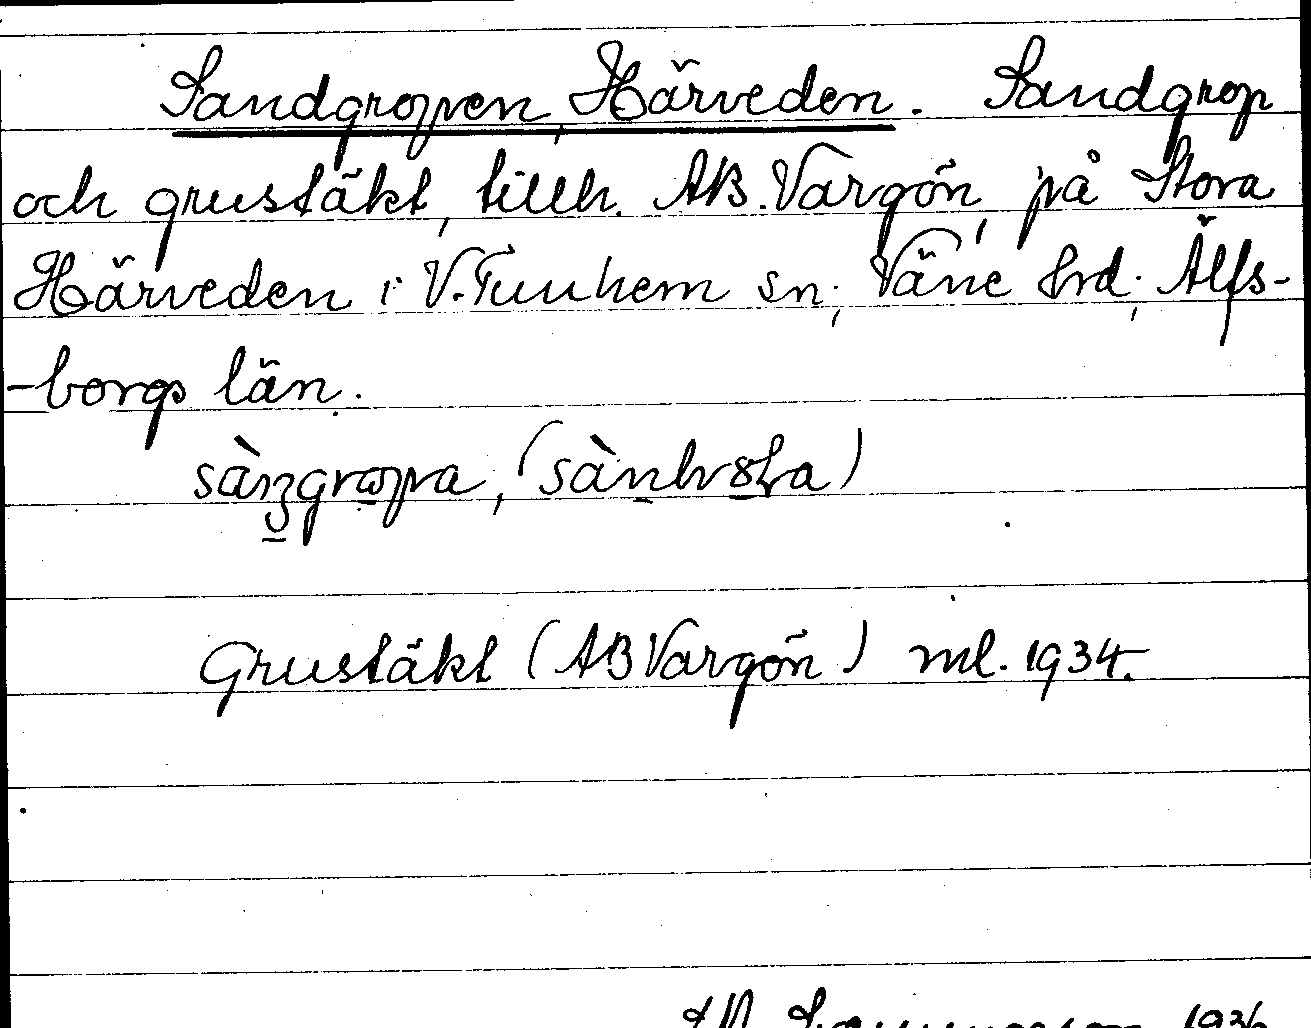 Sandgropen, Härveden. Sandgrop
och grustäkt, tillh. AB. Vargön, på Stora
Härveden i V. Tunhem sn; Väne hrd; Älfs-
-borgs län.
sàŋgrɷpa, (sànhvɷla)
Grustäkt (AB Vargön) ml. 1934.
1936